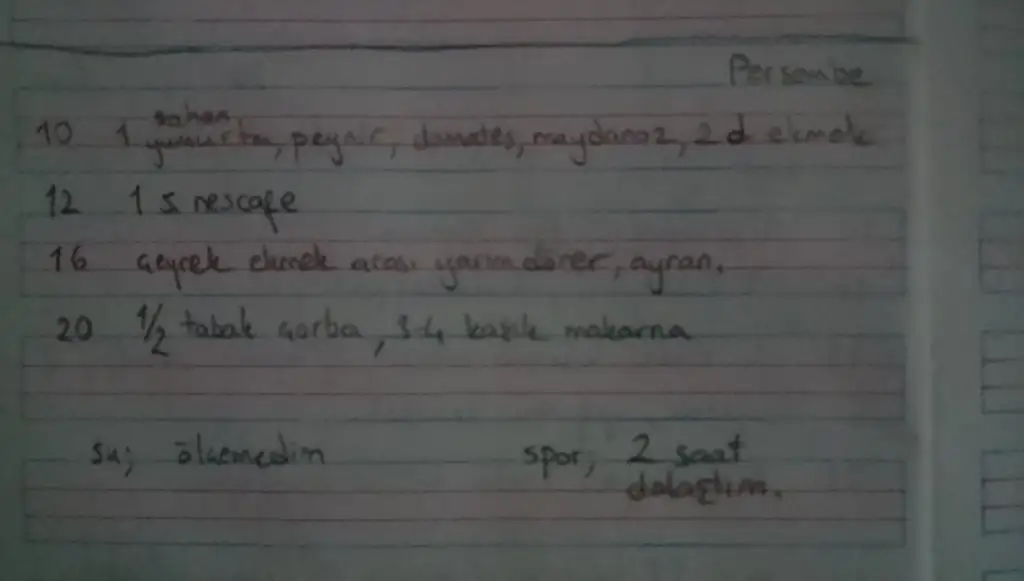 Persembe
sahan
10 1 yumurta, peynir, domates, maydanoz, 2 d ekmek
12 1 s. nescafe
16 çeyrek ekmek arası yarım döner, ayran.
20 1/2 tabak çorba, 3 4 kaşık makarna
su; ölçemedim spor; 2 saat
dolaştım.